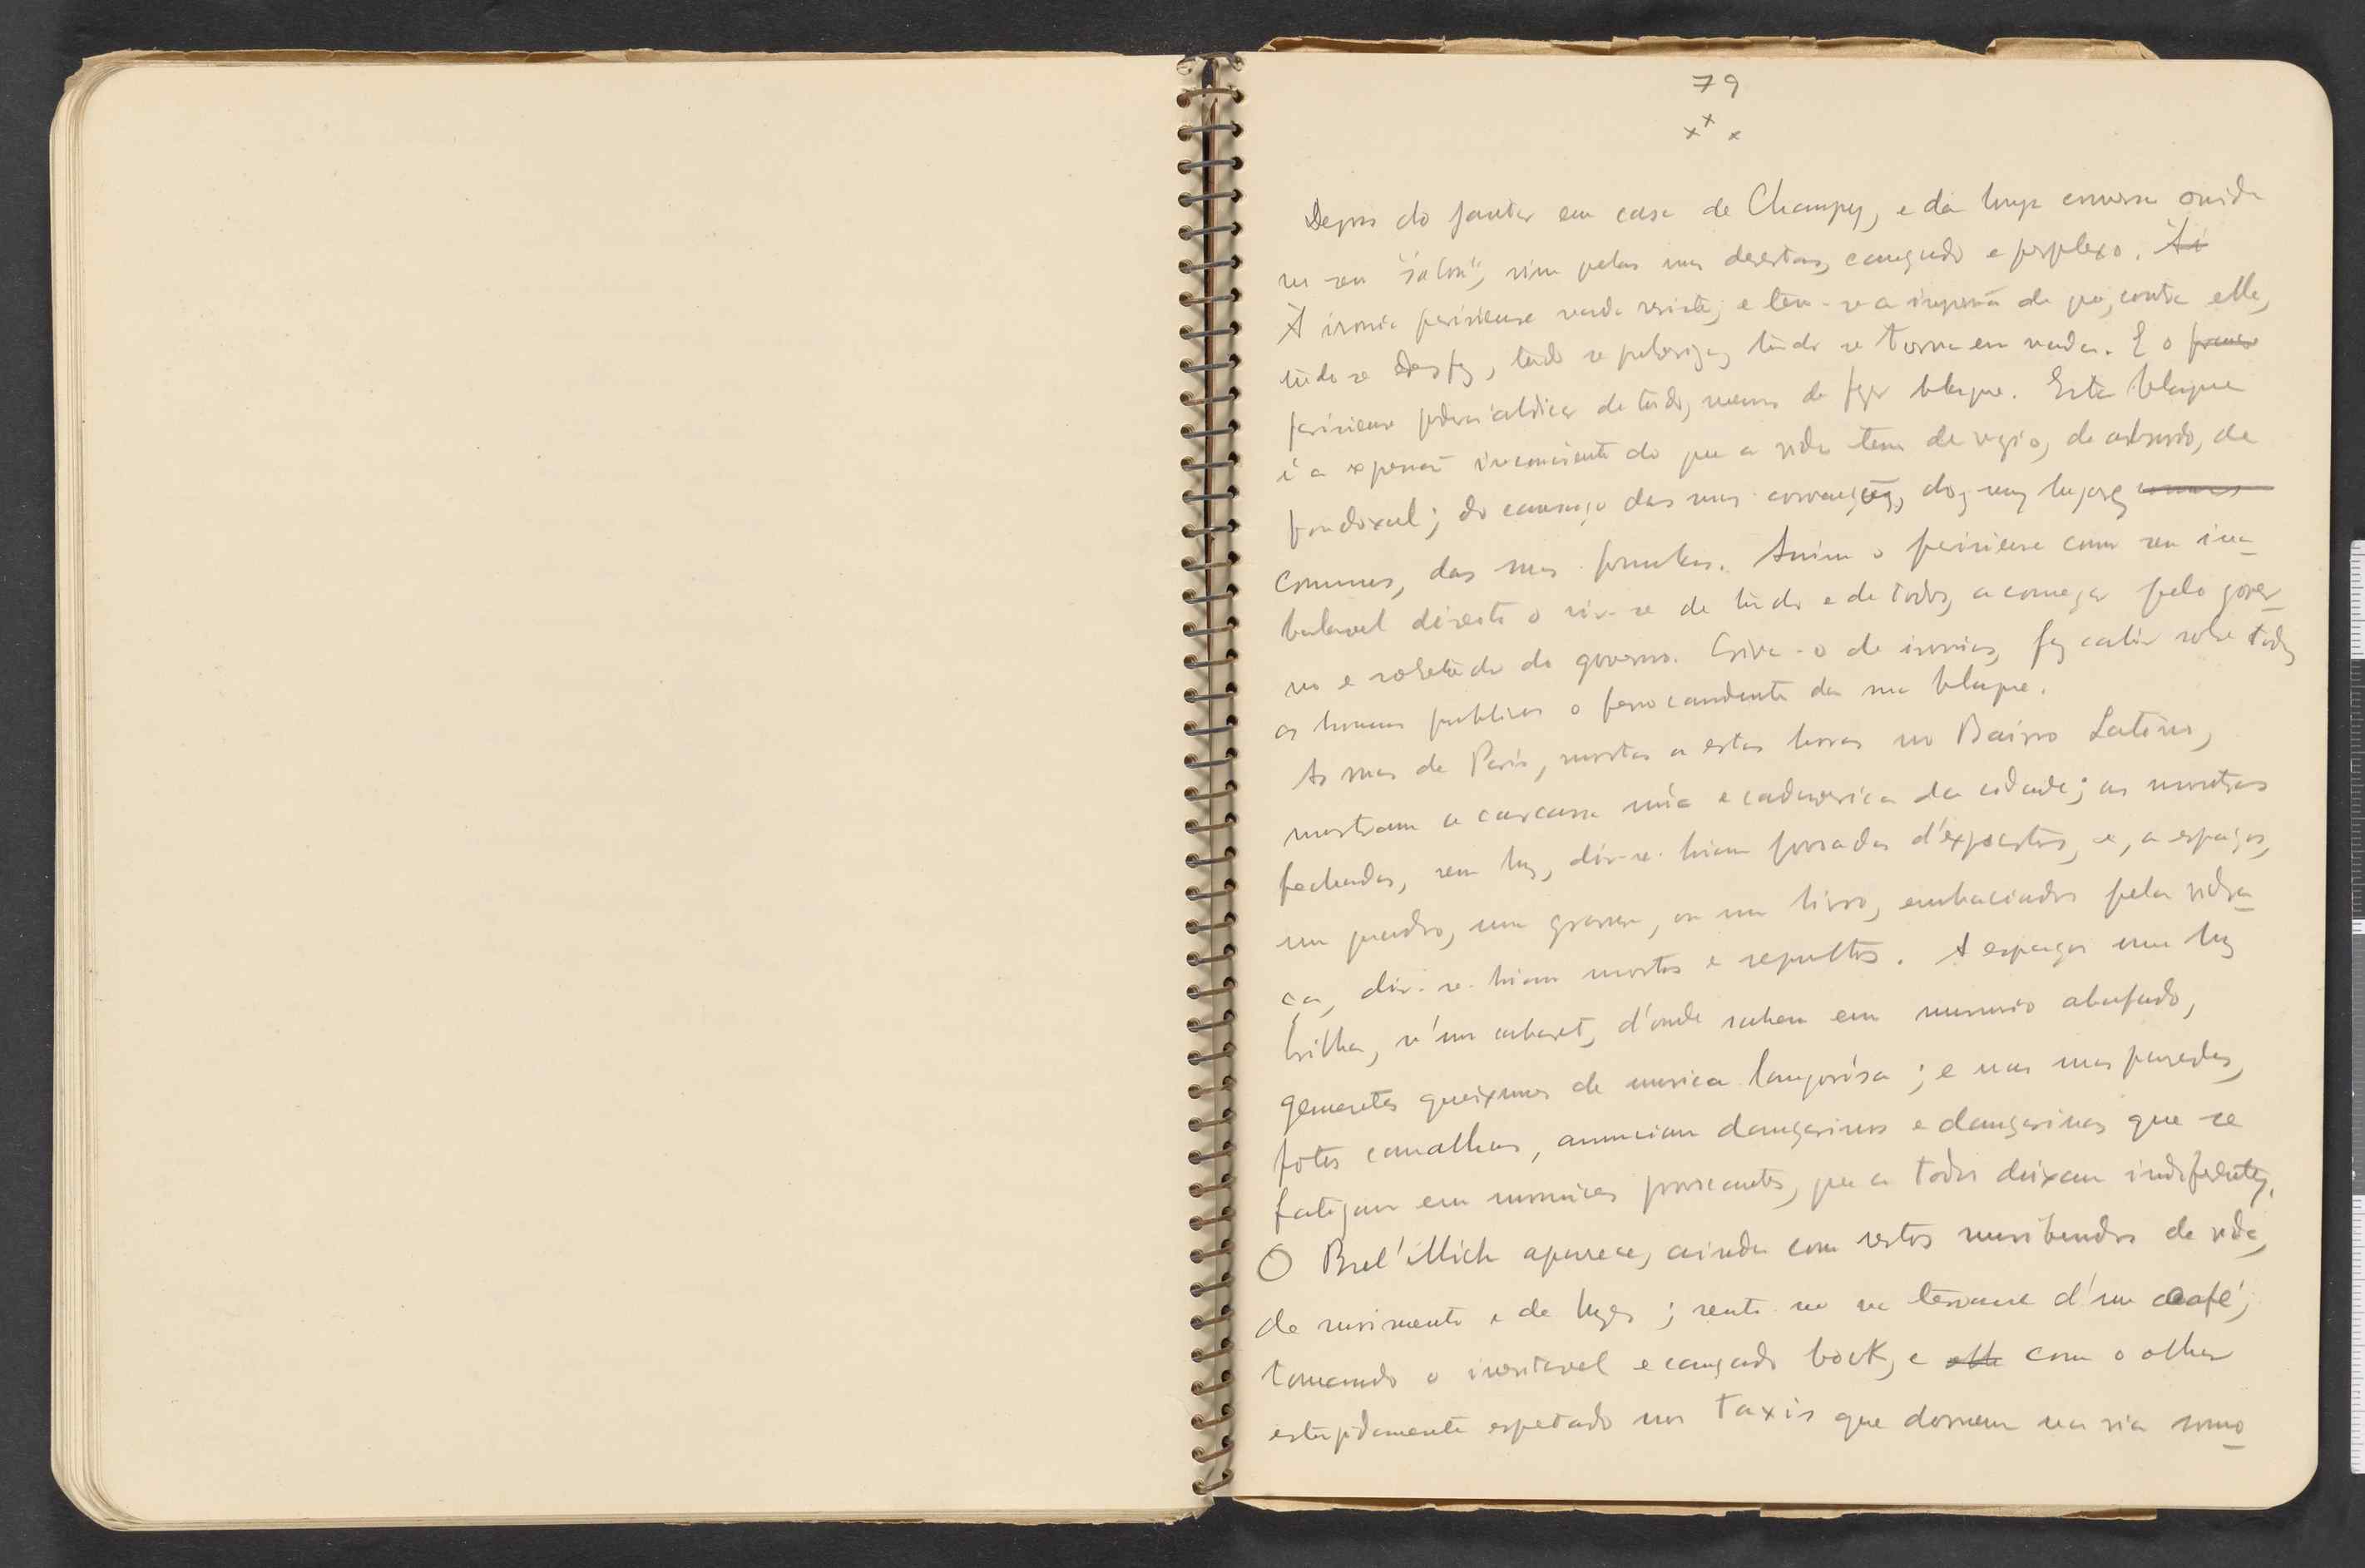 79
x x x
Depois do jantar em casa de Champy, e da longa conversa ouvida
no seu "salon", vim pelas ruas desertas, cançado e perplexo. Ai
A ironia parisiense nada resiste; e tem-se a impressão de que, contra ella,
tudo se desfaz, tudo se pulveriza, tudo se torna em nada. E o
parisiense poderá abdicar de tudo, menos de fazer blague. Esta blague
é a expressão inconsciente do que a vida tem de vazio, de absurdo, de
paradoxal; do cansaço das suas convenções, dos seus lugares
communs, das suas formulas. Assim o parisiense com seu ina-
balavel direito o rir-se de tudo e de todos, a começar pelo gover-
no e sobretudo do governo. Criva-o de ironias, faz cahir sobre todos
os homens publicos o ferro candente da sua blague.
As ruas de Paris, mortas a estas horas no Bairro Latino,
mostram a carcassa núa e cadaverica da cidade; as montras
fechadas, sem luz, dir-se-hiam d'expostos, e, a espaços,
um quadro, uma gravura, ou um livro, embaciados pela vidra-
ça, dir-se-hiam mortos e sepultos. A espaços uma luz
brilha, n'um cabaret, d'onde sahem em murmurio abafado,
gementes queixumes de musica langorósa; e nas suas paredes,
fotos canalhas, annunciam dançarinos e dançarinas que se
fatigam em que a todos deixam indiferentes.
O Boul'Mich aparece, ainda com restos moribundos de vida,
de movimento e de luzes; sento-me na terrasse d'um café,
tomando o inevitavel e cançado bock, e com o olhar
estupidamente espetado nos taxis que dormem na via somno-